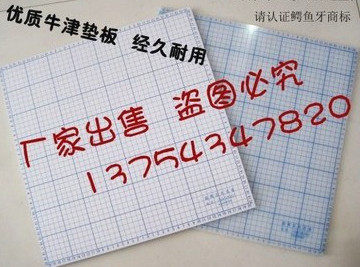 请认证鳄鱼牙商标
优质牛津垫板 经久耐用
厂家出售 盗图必究
13754347820